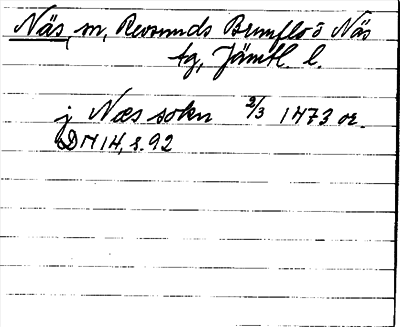 Näs, sn, Revsunds Brunflo o Näs
tg, Jämtl l.
j Næs sokn 2/3 1473 or.
DN 14, s. 92